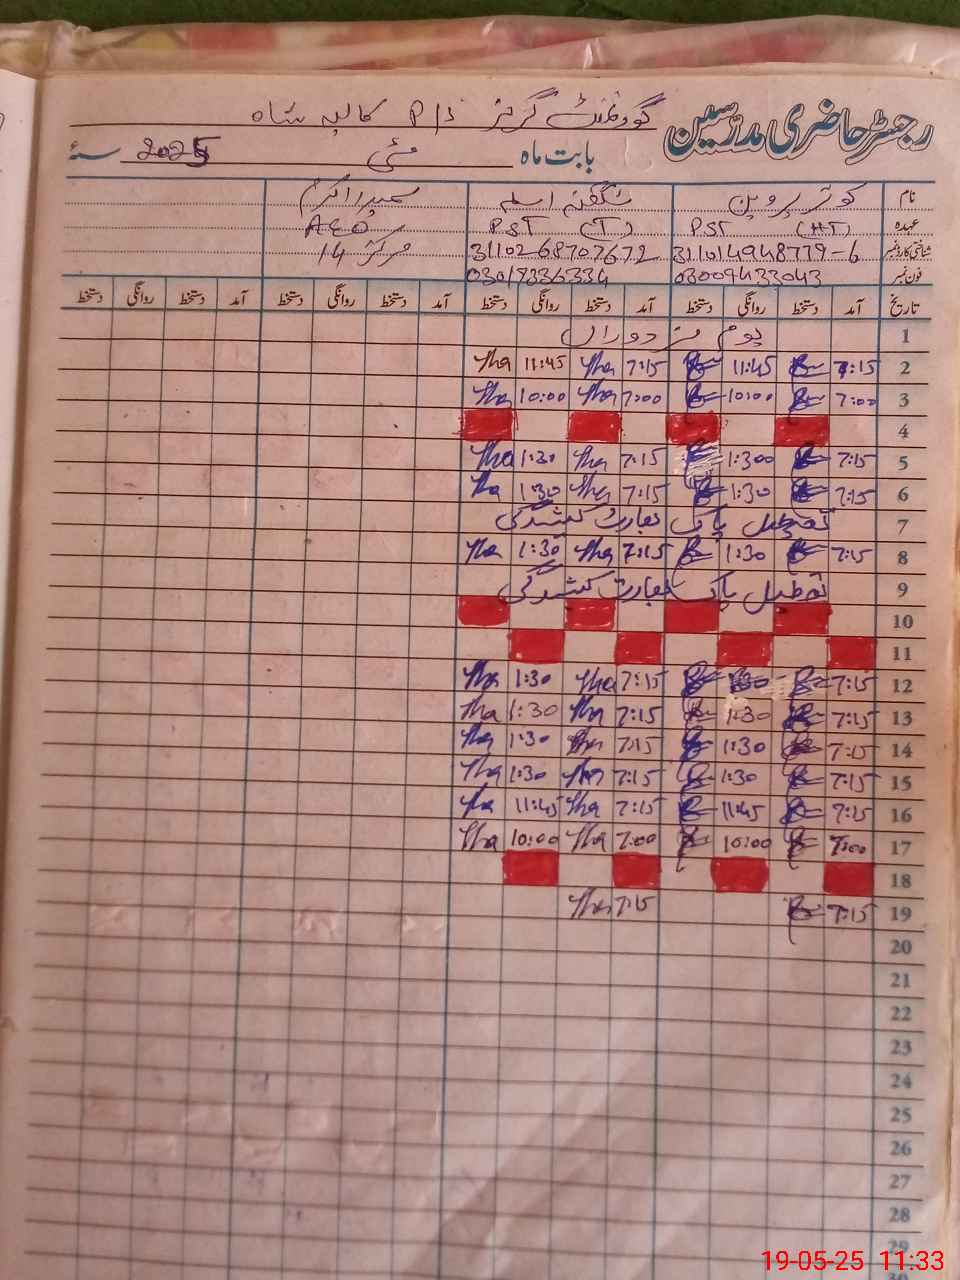 رجسٹر حاضری مدرسین
گورنمنٹ گرلز P/S کالیہ شاہ
بابت ماہ مئی 2025 سنہ
نام کوثر پروین شگفتہ اسلم
عہدہ PST (HT) PST (T) AEO
شناختی کارڈ نمبر 31101-4948779-6 3110268707672 مرکز 14
فون نمبر 03009433043 03018336334
تاریخ آمد دستخط روانگی دستخط آمد دستخط روانگی دستخط آمد دستخط روانگی دستخط آمد دستخط روانگی دستخط
1 یوم مزدوراں
2 7:15 11:45 7:15 11:45
3 7:00 10:00 7:00 10:00
4
5 7:15 1:300 7:15 1:30
6 7:15 1:30 7:15 1:30
7 تعطیل پاک بھارت کشیدگی
8 7:15 1:30 7:15 1:30
9 تعطیل پاک بھارت کشیدگی
10
11
12 7:15 7:15 1:30
13 7:15 1:30 7:15 1:30
14 7:15 1:30 7:15 1:30
15 7:15 1:30 7:15 1:30
16 7:15 11:45 7:15 11:45
17 7:00 10:00 7:00 10:00
18
19 7:15 7:15
20
21
22
23
24
25
26
27
28
29
19-05-25 11:33